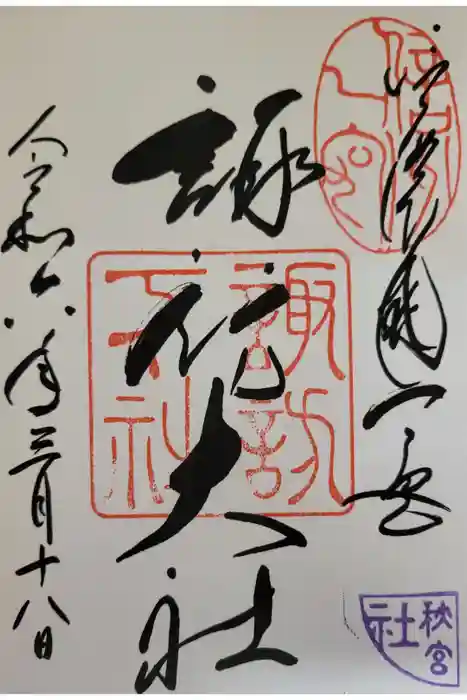 信濃國一宮
諏訪大社
諏訪
下社
秋宮
社
令和六年三月十八日